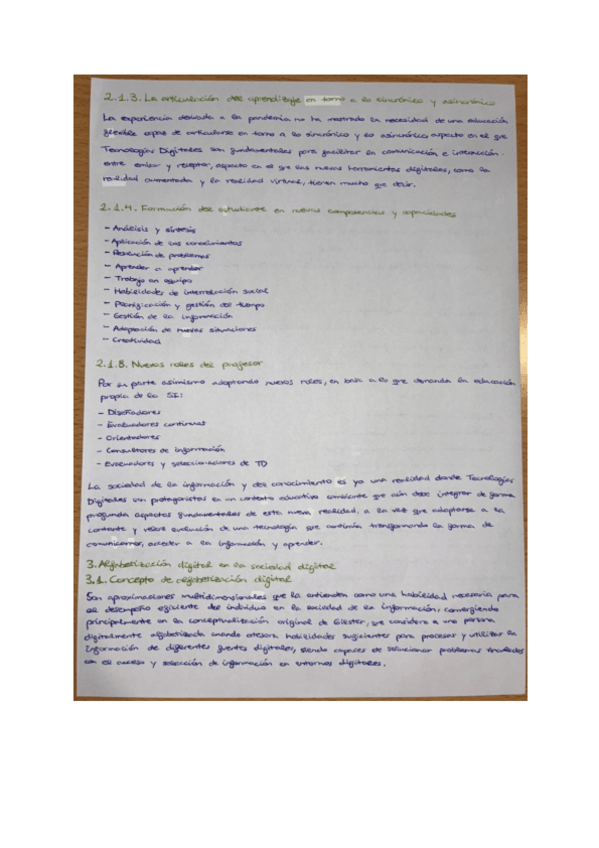 2.1.3. La articulación del aprendizaje en torno a lo sincrónico y asincrónico
La experiencia derivada a la pandemia no ha mostrado la necesidad de una educación
flexible capaz de articularse en torno a lo sincrónico y lo asincrónico, aspecto en el que
Tecnologías Digitales son fundamentales para facilitar la comunicación e interacción
entre emisor y receptor, aspecto en el que las nuevas herramientas digitales, como la
realidad aumentada y la realidad virtual, tienen mucho que decir.
2.1.4. Formación del estudiante en nuevas competencias y capacidades
- Análisis y síntesis
- Aplicación de los conocimientos
- Resolución de problemas
- Aprender a aprender
- Trabajo en equipo
- Habilidades de interrelación social
- Planificación y gestión del tiempo
- Gestión de la información
- Adaptación de nuevas situaciones
- Creatividad
2.1.8. Nuevos roles del profesor
Por su parte asimismo adoptando nuevos roles, en base a lo que demanda la educación
propia de la SI:
- Diseñadores
- Evaluadores continuos
- Orientadores
- Consultores de información
- Evaluadores y seleccionadores de TD
La sociedad de la información y del conocimiento es ya una realidad donde Tecnologías
Digitales son protagonistas en un contexto educativo cambiante que aún debe integrar de forma
profunda aspectos fundamentales de esta nueva realidad, a la vez que adaptarse a la
constante y veloz evolución de una tecnología que continúa transformando la forma de
comunicarnos, acceder a la información y aprender.
3. Alfabetización digital en la sociedad digital
3.1. Concepto de alfabetización digital
Son aproximaciones multidimensionales que la entienden como una habilidad necesaria para
el desempeño eficiente del individuo en la sociedad de la información, convergiendo
principalmente en la conceptualización original de Gilster, que considera a una persona
digitalmente alfabetizada cuando atesora habilidades suficientes para procesar y utilizar la
información de diferentes fuentes digitales, siendo capaces de solucionar problemas vinculados
con el acceso y selección de información en entornos digitales.